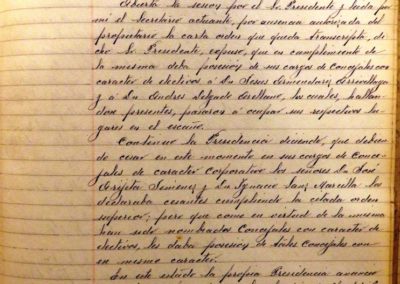 Abierta la sesion por el Sr. Presidente y leida por
mi el Secretario actuante, por ausencia autorizada del
propietario la carta orden que queda transcripta, di-
cho Sr. Presidente, expuso, que en cumplimiento de
la misma daba posesion de sus cargos de Concejales con
caracter de electivos á Dn Jesus
y á Dn Andres Delgado Arellano, los cuales, hallan-
dose presentes, pasaron á ocupar sus respectivos lu-
gares en el escaño.
Continuo la Presidencia diciendo, que debien-
do cesar en este momento en sus cargos de Conce-
jales de caracter Corporativo los señores Dn Jose
Jimenez y Dn Ignacio Sanz Marcilla los
declaraba cesantes cumpliendo la citada orden
superior; pero que como en virtud de la misma
han sido nombrados Concejales con caracter de
electivos, les daba posesion de tales Concejales con
en mismo caracter.
En este estado la propia Presidencia